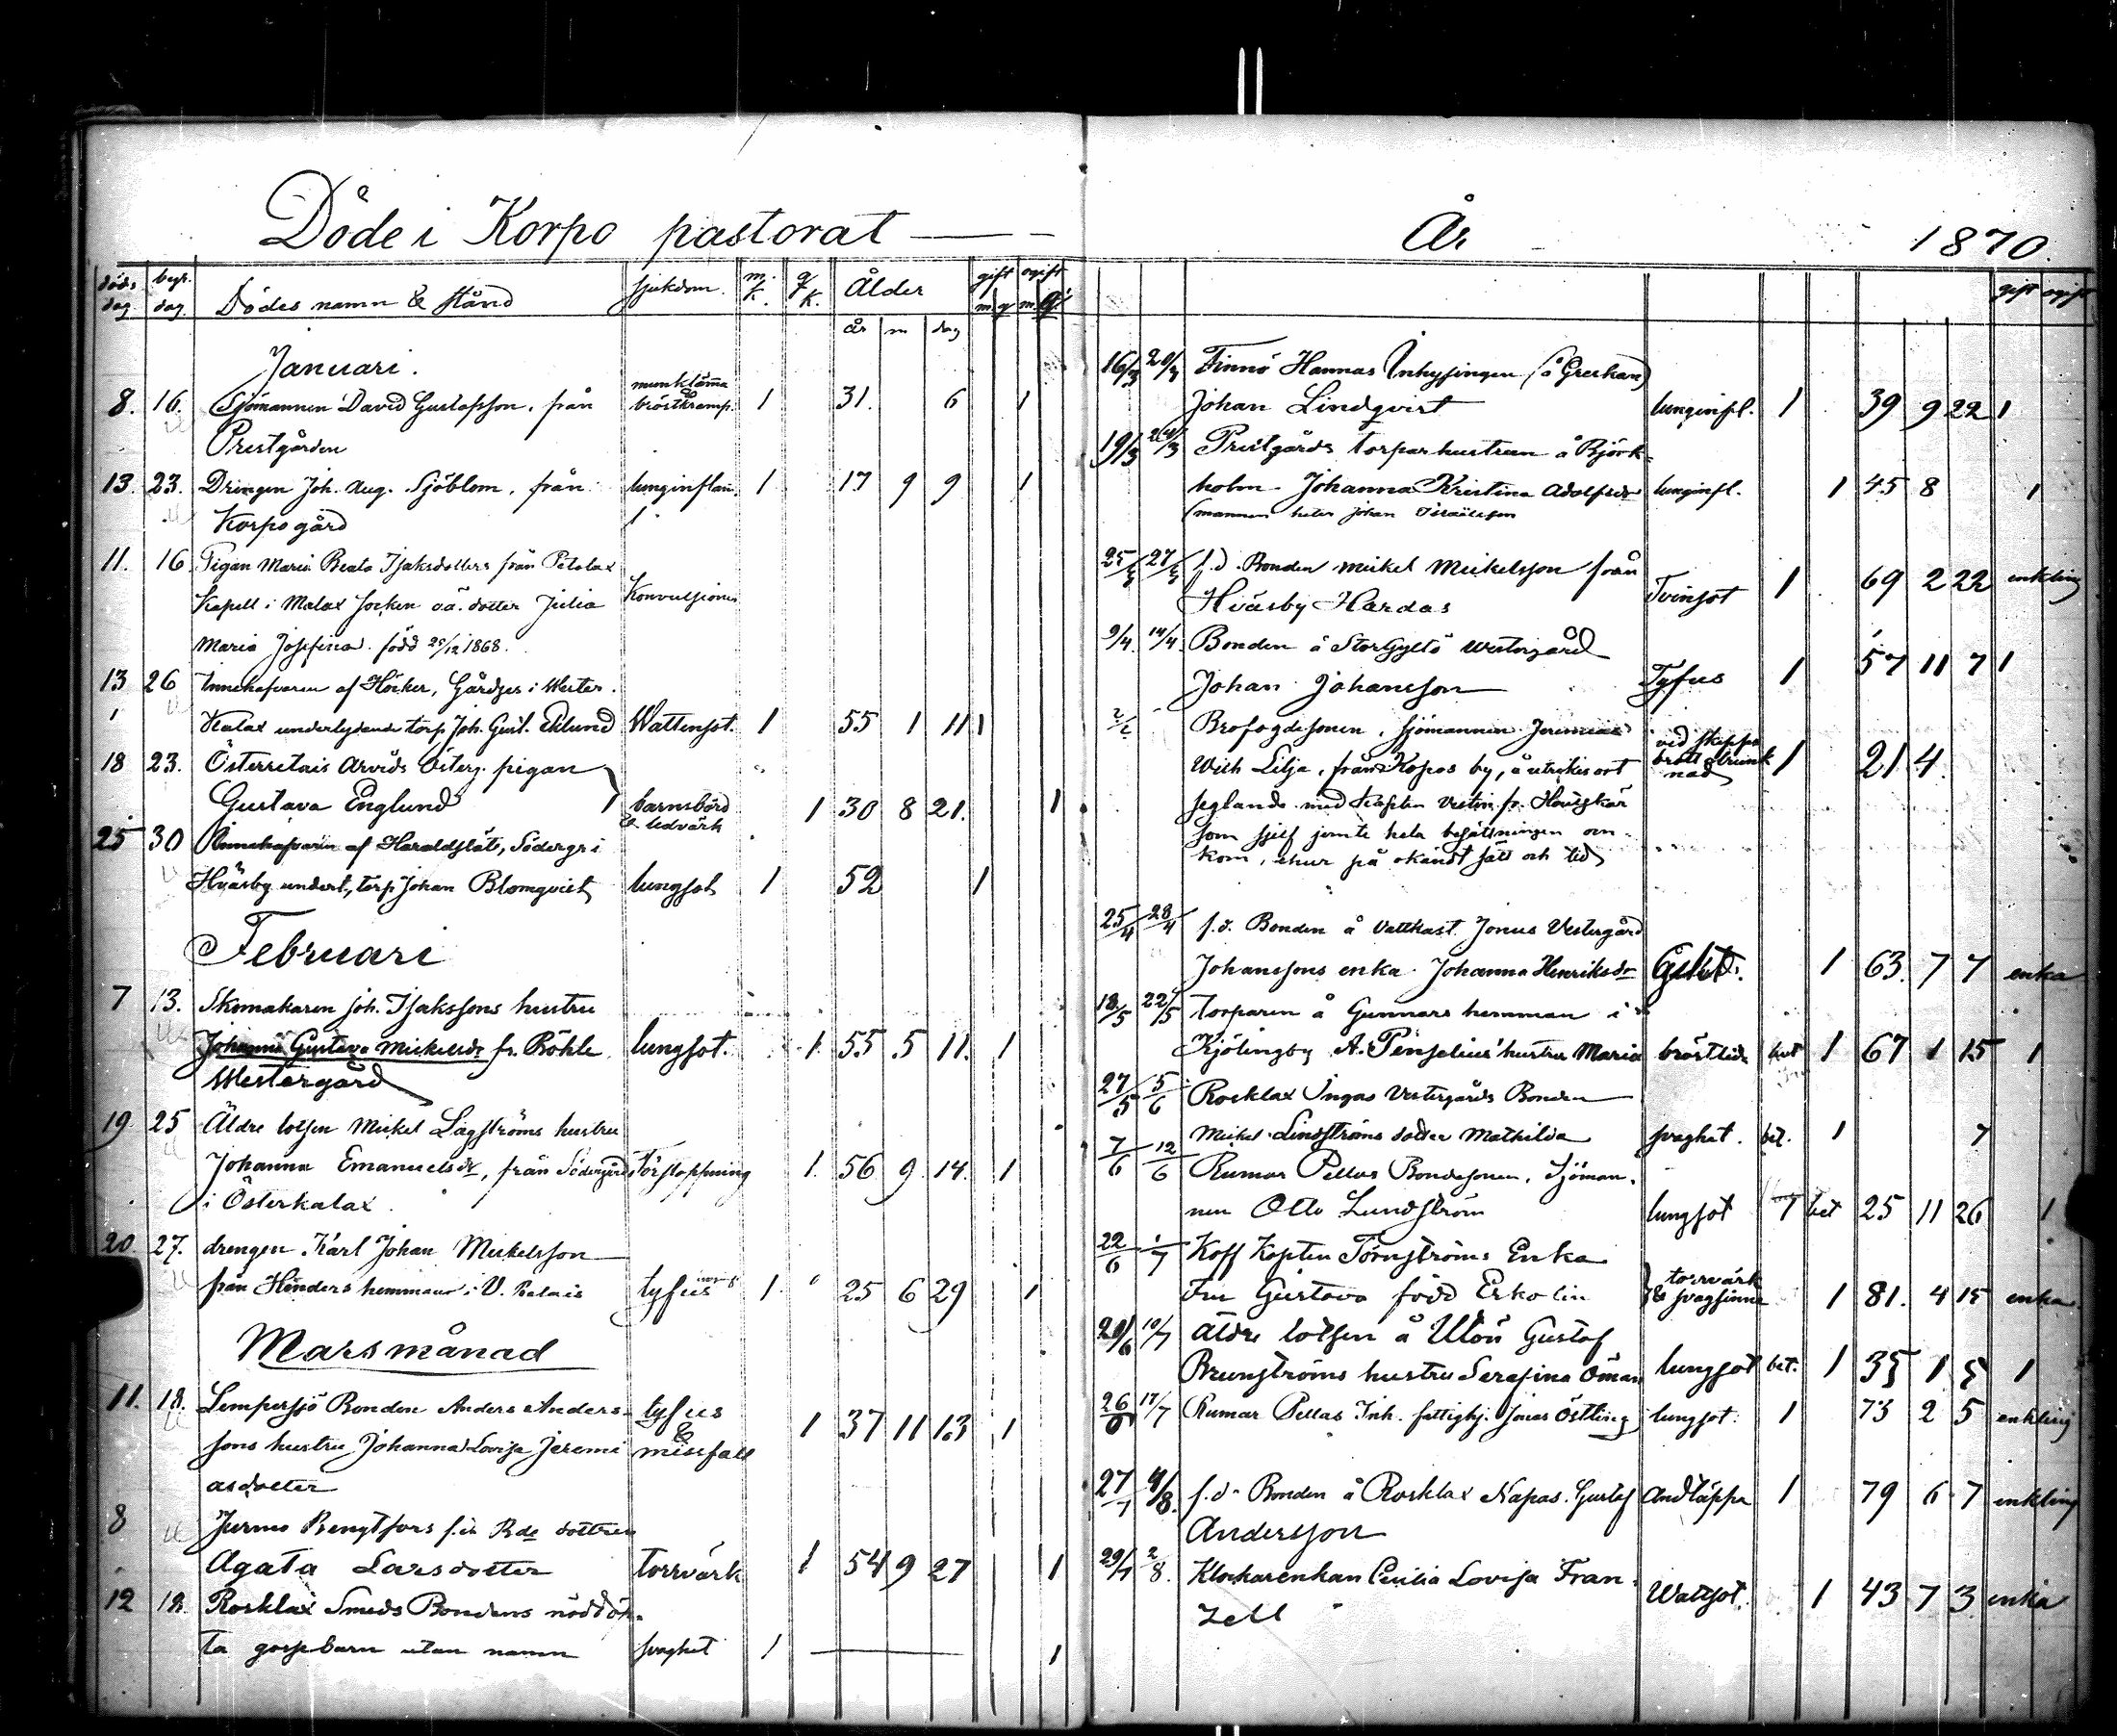 Döde i Korpo pastorat
döds dag begr. dag Dödes namn & stånd sjukdom. m. K. q. K. Ålder gift ogift
m q m q
år m dag
Januari.
munklåmma
8. 16. Sjömannen David Gustafsson, från bröstkramp. 1 31. 6 1
Prestgården
13. 23. Drengen Joh. Aug. Sjöblom, från lunginflam. 1 17 9 9 1
Korpo gård
11. 16 Pigan Maria Beata Isaksdotters från Petalax
Kapell i Malax socken o.ä. dotter Julia Konvulsioner
Maria Josefina. född 25/12 1868.
13 26 Innehafvaren af Höcker, Gårdges i Wester.
Kalax underlydande torp Joh. Gust. Eklund Wattensot. 1 55 1 11 1
18 23. Österretais Arvids Österg. pigan
Gustava Englund barnsbörd 1 30 8 21. 1
& ledvärk
25 30 Innehafvaren af Haraldsläts, Södergr i
Hväsby underl. torp Johan Blomqvist lungsot 1 52 1
Februari
7 13. Skomakaren Joh. Isakssons hustru
Johanna Gustava Mickelsdr fr. Röhle lungsot. 1 55 5 11. 1
Westergård
19. 25 Äldre lotsen Mickel Lagströms hustru
Johanna Emanuelsdr, från Södergårds förstoppning 1. 56 9 14. 1
i Österkalax.
20 27. drengen Karl Johan Mickelsson
från Hinders hemman i V. Retais tyfus 1. 25 6 29 1
Marsmånad
11. 18. Lempersjö Bonden Anders Anders- tyfus 1 37 11 13 1
sons hustru Johanna Lovisa Jeremi & missfall
asdotter
8 Jurmo Bengtsfors f.d. Bde dottren
Agata Larsdotter torrvärk 1 54 9 27 1
12 18. Rosklax Smeds Bondens nöddöp-
ta gossebarn utan namn svaghet 1 1
År 1870.
gift ogift
16/3 20/3 Finnö Hannas Inhysingen (å Grerkan)
Johan Lindqvist lunginfl. 1 39 9 22 1
19/3 Prestgårds torparhustrun å Björk-
holm. Johanna Kristina Adolfsdr lunginfl. 1 45 8 1
(mannen heter Johan Israelsson
25/3 27/3 f.d. Bonden Mickel Mickelsson från
Hväsby Hardas Tvinsot 1 69 2 22 enkling
9/4. 14/4. Bonden å StorGyltö Westergård
Johan Johansson Tyfus 1 57 11 7 1
Brofogdesonen, sjömannen Jeremias vid skepps
Wilh Lilja, från Kopos by, å utrikes ort brott drunk 1 21 4.
seglande med Kapten Vestin fr. Houtskär nad
som sjelf jemte hela besättningen om-
kom, ehur på okändt sätt och tid
25/4 28/4 f.d. Bonden å Vattkast Jonus Vestergård
Johanssons enka. Johanna Henriksdr 1 63. 7 7 enka
18/5 22/5 Torparen å Gunnars hemman i
Kjölingby A. Penselius' hustru Maria bröstlid. 1 67 1 15 1
27/5 5/6 Rosklax Ingas Vestergårds Bonden
Mickel Lindströms dotter Mathilda svaghet. bet. 1 7
7/6 12/6 Rumar Pellas Bondesonen, Sjöman-
nen Otto Lundström lungsot 1 bet 25 11 26 1
22/6 1/7 Koff Kapten Törnströms Enka torrvärk
Fru Gustava född Eskolin & svagsinne 1 81. 4 15 enka
20/6 10/7 äldre lotsen å Utön Gustaf
Brunströms hustru Serafina Öman lungsot bet. 1 35 1 5 1
26/6 17/7 Rumar Pellas Inh. fattighj. Jonas Östling lungsot. 1 73 2 5 enkling
27/7 4/8. f.d. Bonden å Rosklax Napas. Gustaf Andtäppa 1 79 6 7 enkling
Andersson
29/7 2/8. Klockarenkan Cecilia Lovisa Fran- Wattsot. 1 43 7 3 enka
zell